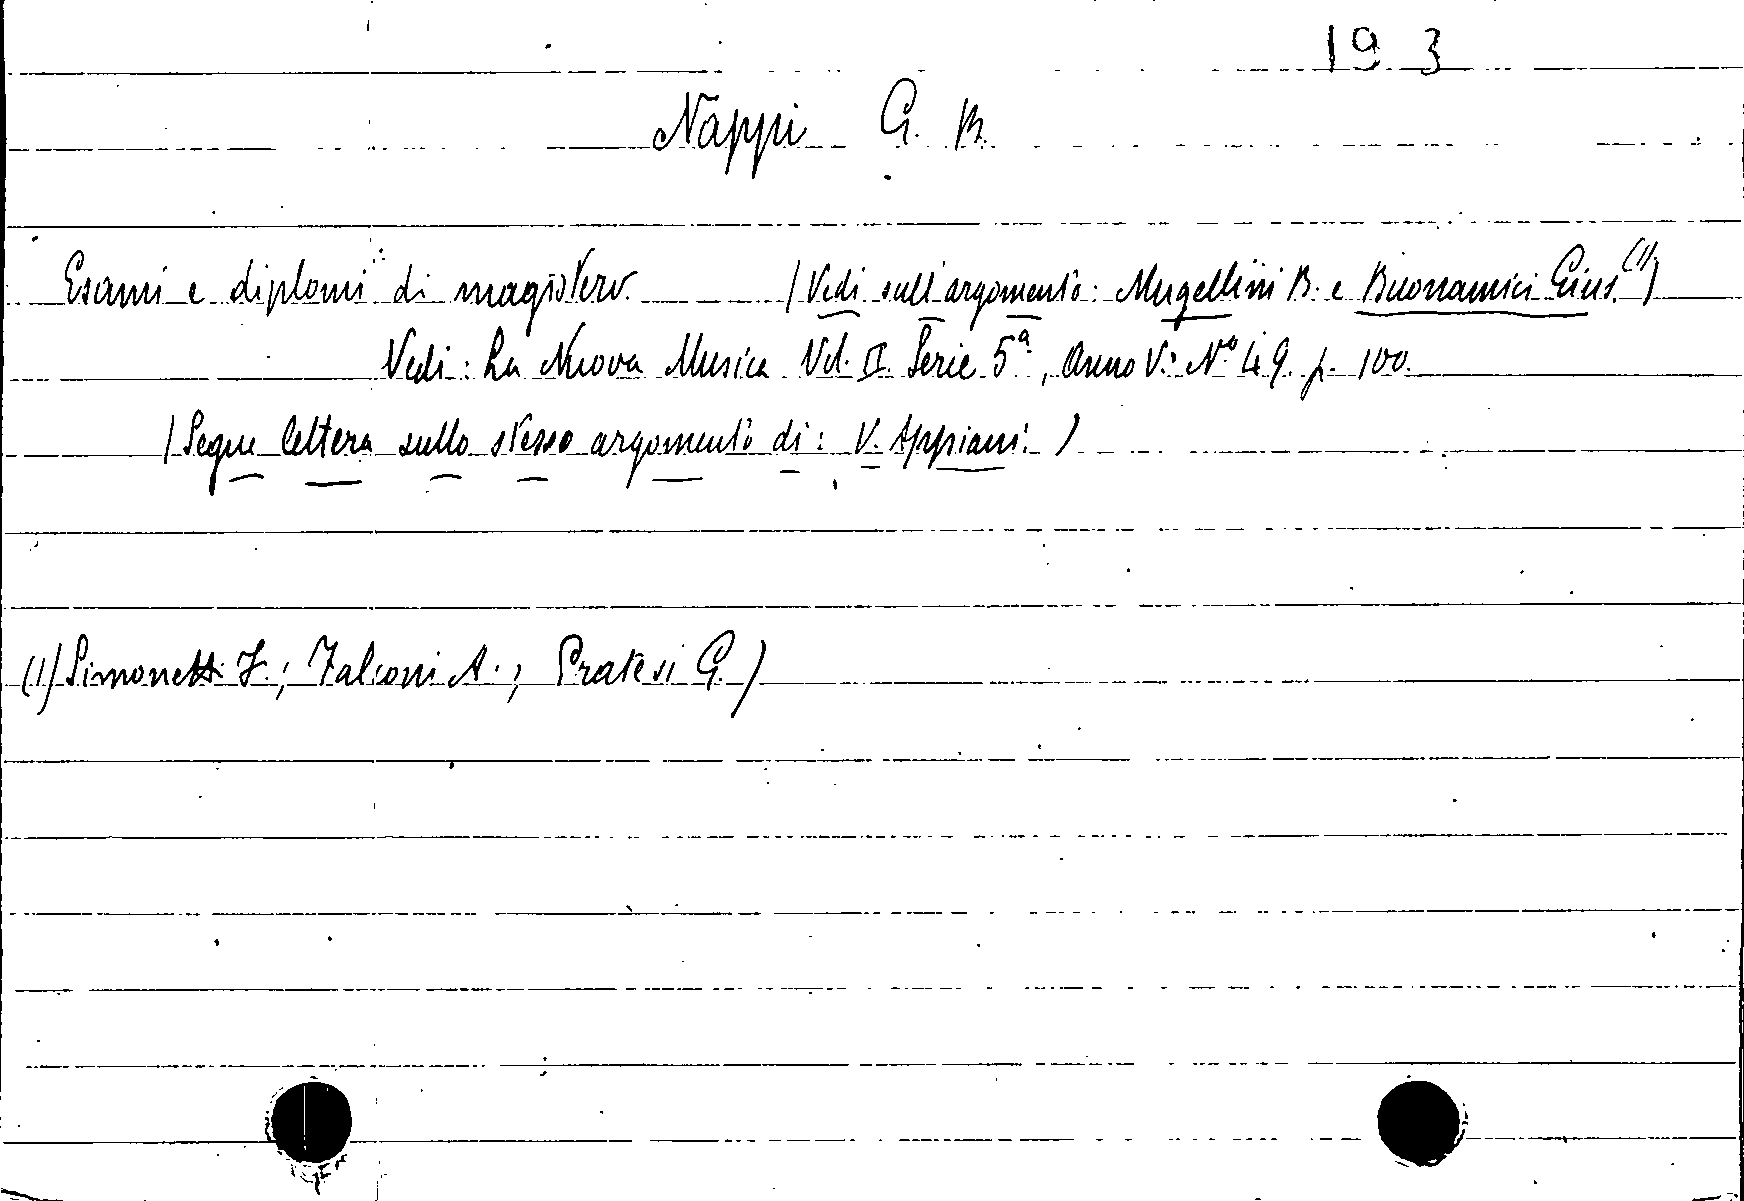 19 3
Nappi G. B.
Esami e diplomi di magistero. (Vedi sull'argomento: Mugellini B. e Buonamici Gius. (1))
Vedi: La Nuova Musica Vol. II. Serie 5ª, Anno V. Nº 49. p. 100.
(Segue lettera sullo stesso argomento di: V. Appiani.)
(1) Simonetti F.; Falconi A.; Pratesi G.)